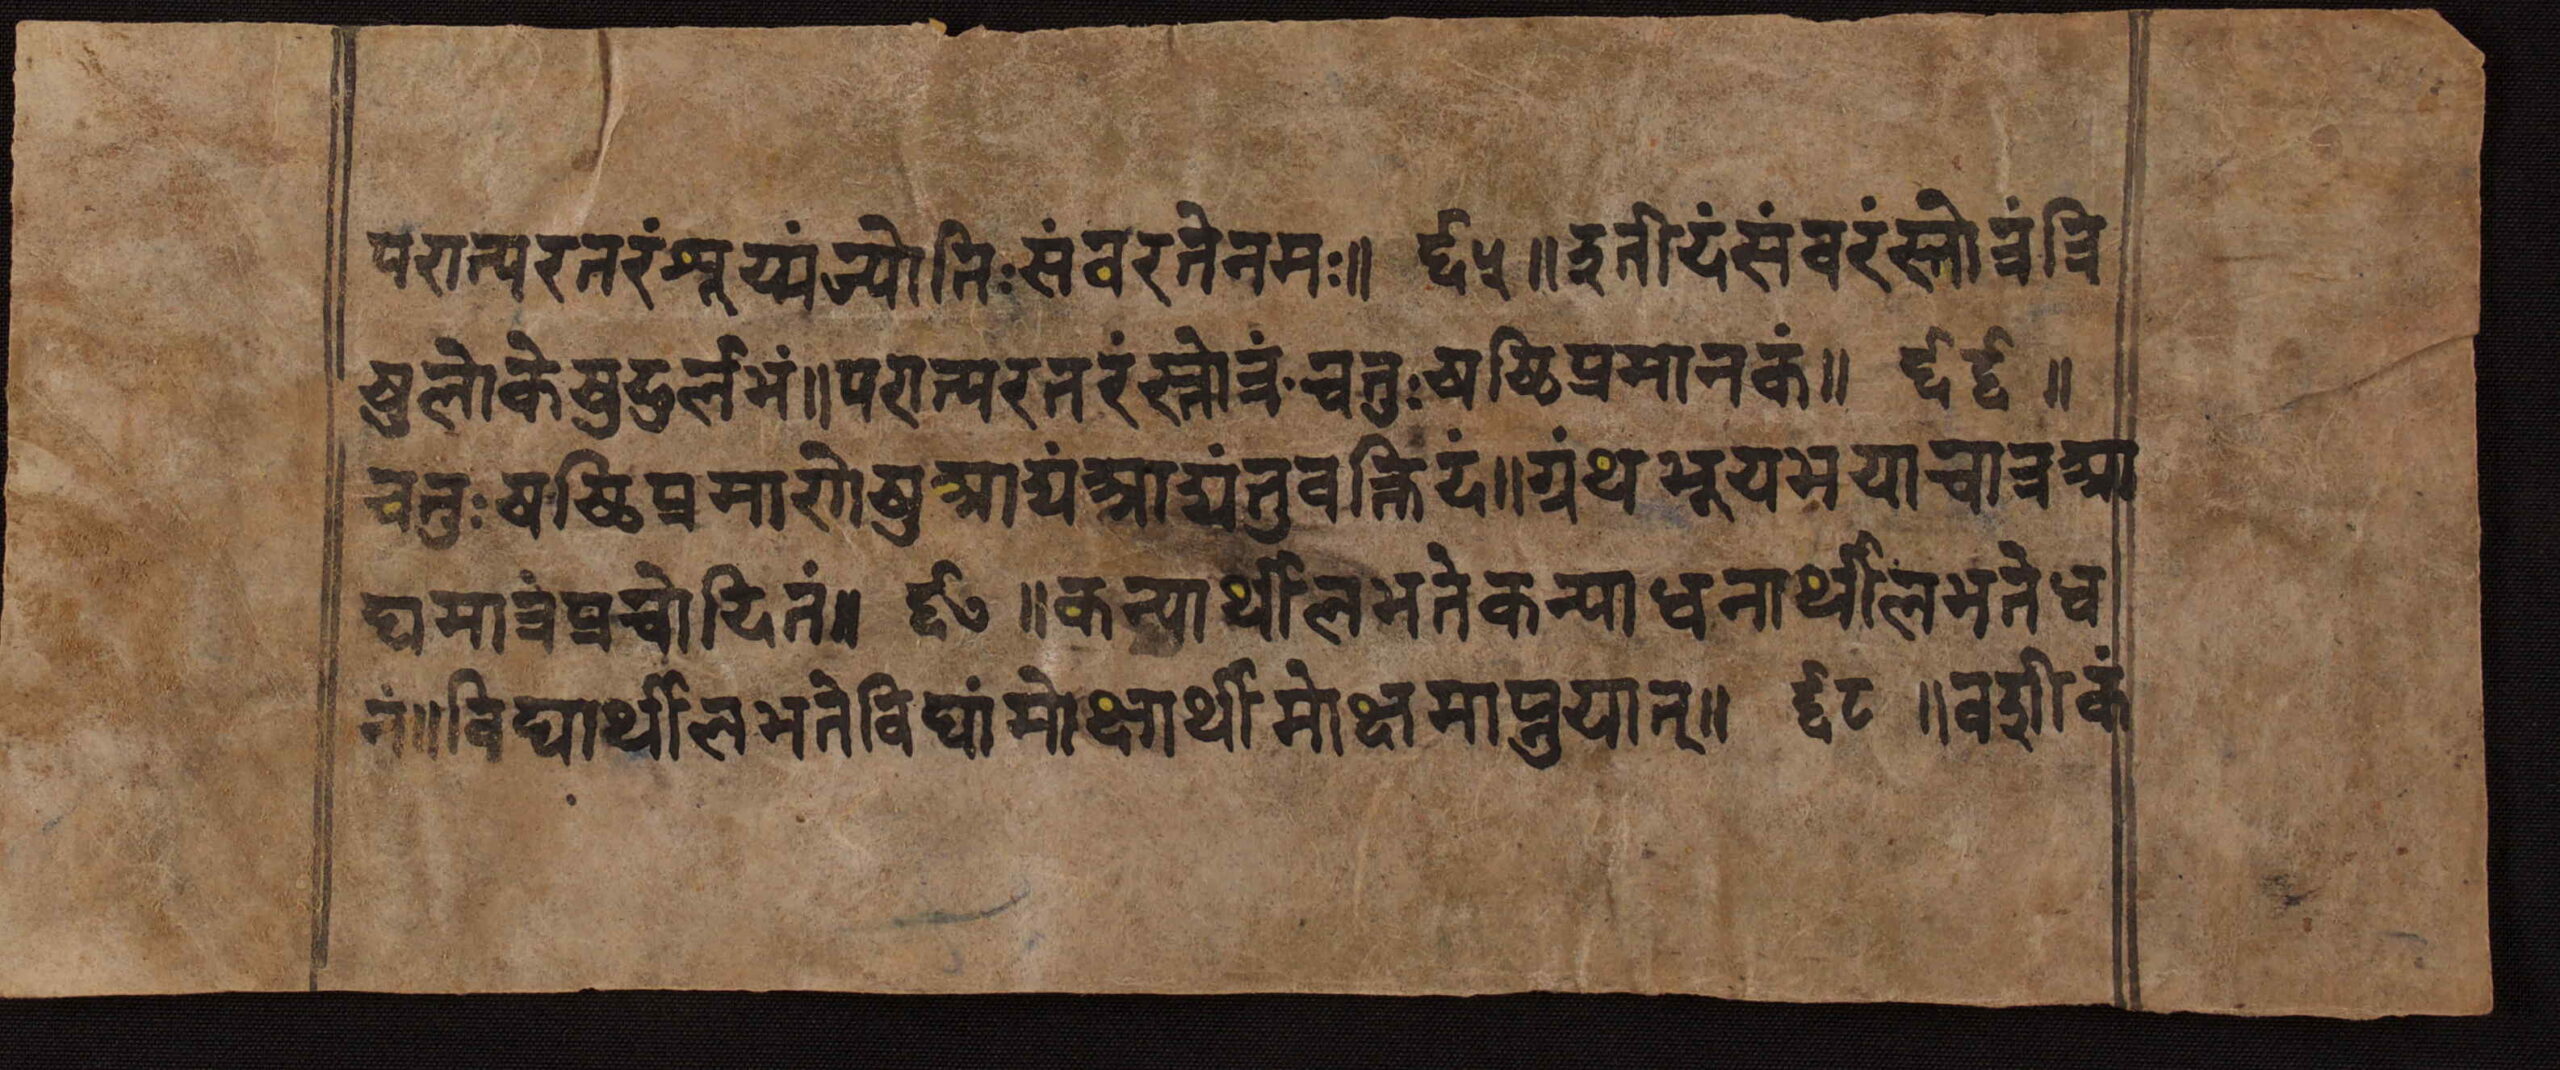 परात्परतरंश्नूय्यंज्योतिःसंवरतेनमः॥ ६५ ॥इतीदंसंवरंस्तोत्रंत्रि
षुलोकेषुदुर्लभं॥परात्परतरंस्तोत्रंचतुःषष्ठिप्रमानकं॥ ६६ ॥
चतुःषष्ठिप्रमाणेषुआद्यंआद्यंतुवक्तिदं॥ग्रंथभूयभयाच्चात्रआ
द्यमात्रंप्रचोदितं॥ ६७ ॥कन्यार्थीलभतेकन्याधनार्थीलभतेध
नं॥विद्यार्थीलभतेविद्यांमोक्षार्थीमोक्षमाप्नुयात्॥ ६८ ॥वशीकं